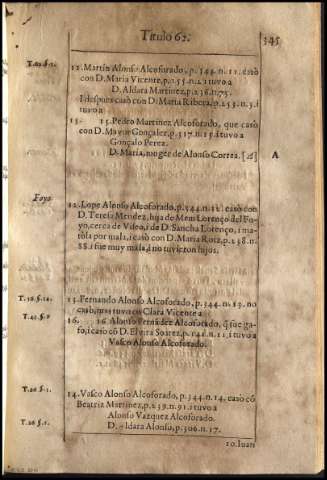 Titulo 62.
345
12. Martin Alonso Alcoforado, p. 344. n. 12. casò
con D. Maria Vicente, p. 155. n. 2. i tuvo a
D. Aldara Martinez, p. 136. n. 75.
I despues casò con D. Maria Ribera, p. 253. n. 5. i
tuvo a
15. 15. Pedro Martinez Alcoforado, que casò
con D. Mayor Gonçalez, p. 317. n. 15. i tuvo a
Gonçalo Perez.
D. Maria, muger de Alonso Correa. [A]
A
Foyo
12. Lope Alonso Alcoforado, p. 344. n. 12. casò con
D. Teresa Mendez, hija de Mem Lorenço del Fo-
yo, cerca de Viseo, i de D. Sancha Lorenço, i ma-
tòla por mala, i casò con D. Maria Roiz, p. 238. n.
88. i fue muy mala, i no tuvieron hijos.
13. Fernando Alonso Alcoforado, p. 344. n. 13. no
casò, mas tuvo en Clara Vicente a
16. 16. Alonso Fernandez Alcoforado, q̃ fue ga-
fo, i casò cõ D. Elvira Soarez, p. 141. n. 21. i tuvo a
Vasco Alonso Alcoforado.
14. Vasco Alonso Alcoforado, p. 344. n. 14. casò cõ
Beatriz Martinez, p. 239. n. 91. i tuvo a
Alonso Vazquez Alcoforado.
D. Aldara Alonso, p. 306. n. 17.
10. Iuan